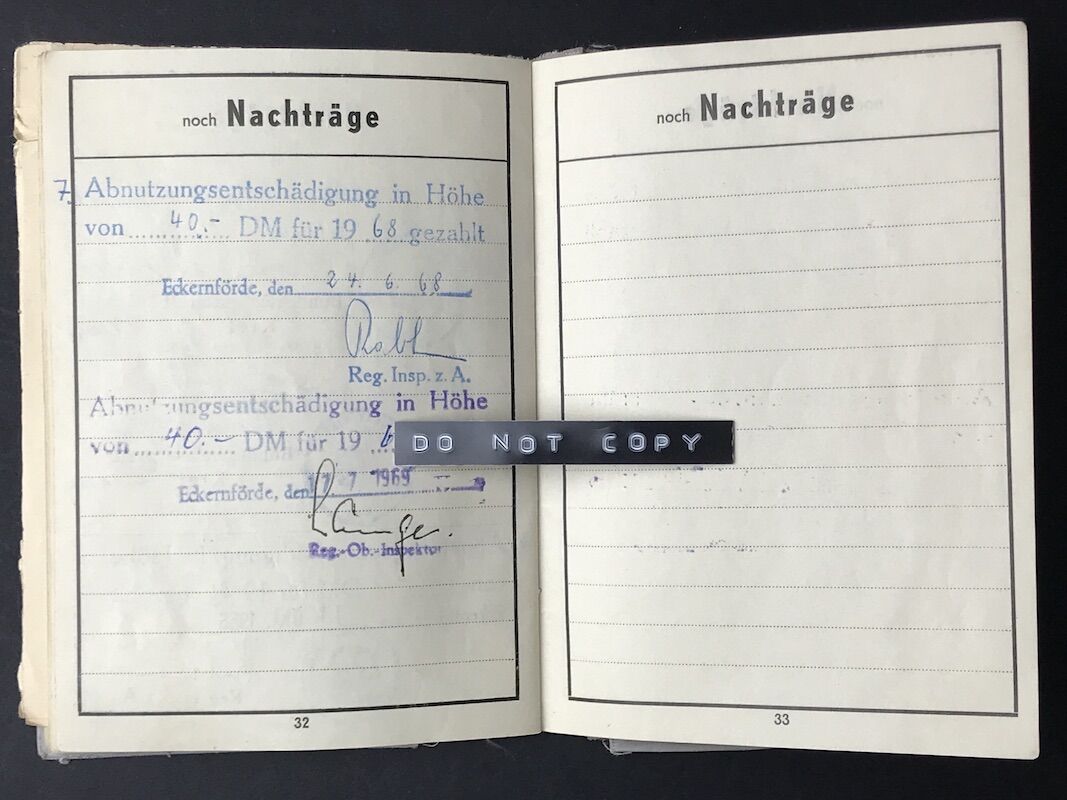 noch Nachträge
7. Abnutzungsentschädigung in Höhe
von 40.- DM für 19 68 gezahlt
Eckernförde, den 24. 6. 68
Reg. Insp. z. A.
Abnutzungsentschädigung in Höhe
von 40.- DM für 19 6
Eckernförde, den 7. 7 1969
Reg.-Ob.-Inspektor
32
noch Nachträge
DO NOT COPY
33